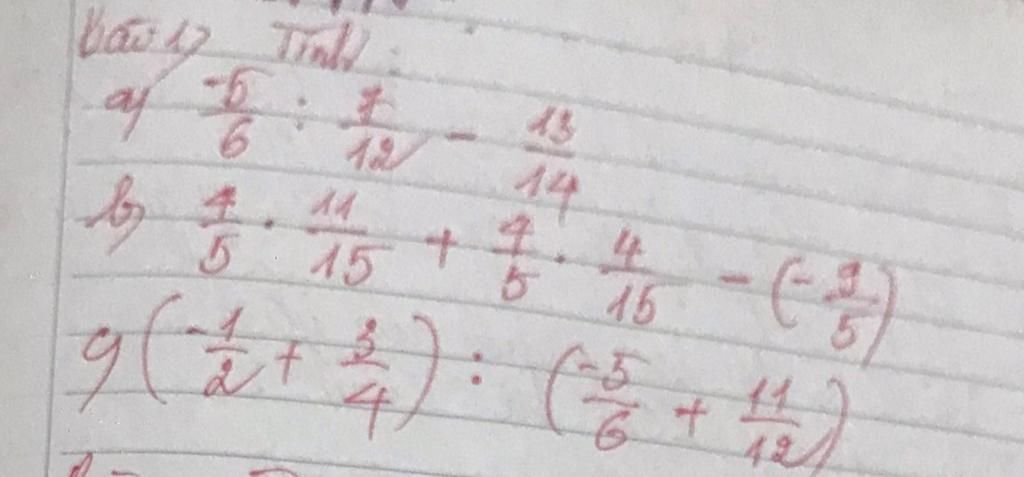 Bài 1) Tính:
a) -5/6 : 7/12 - 13/14
b) 4/5 . 11/15 + 4/5 . 4/15 - (-9/5)
c) (-1/2 + 3/4) : (-5/6 + 11/12)